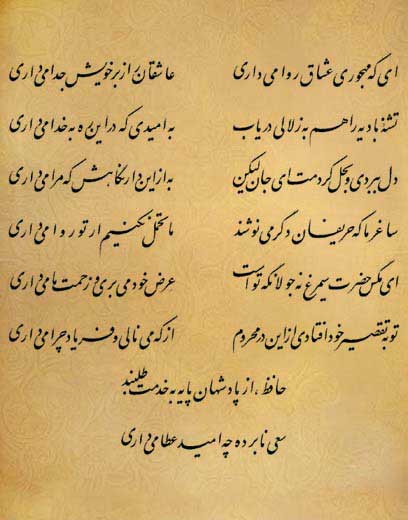 ای که مهجوری عشاق روا می داری عاشقان را ز بر خویش جدا می داری
تشنهٔ بادیه را هم به زلالی دریاب به امیدی که در این ره به خدا می داری
دل ببردی و بحل کردمت ای جان لیکن به از این دار نگاهش که مرا می داری
ساغر ما که حریفان دگر می نوشند ما تحمل نکنیم ار تو روا می داری
ای مگس حضرت سیمرغ نه جولانگه توست عرض خود می بری و زحمت ما می داری
تو به تقصیر خود افتادی از این در محروم از که می نالی و فریاد چرا می داری
حافظ، از پادشهان پایه به خدمت طلبند
سعی نابرده چه امید عطا می داری